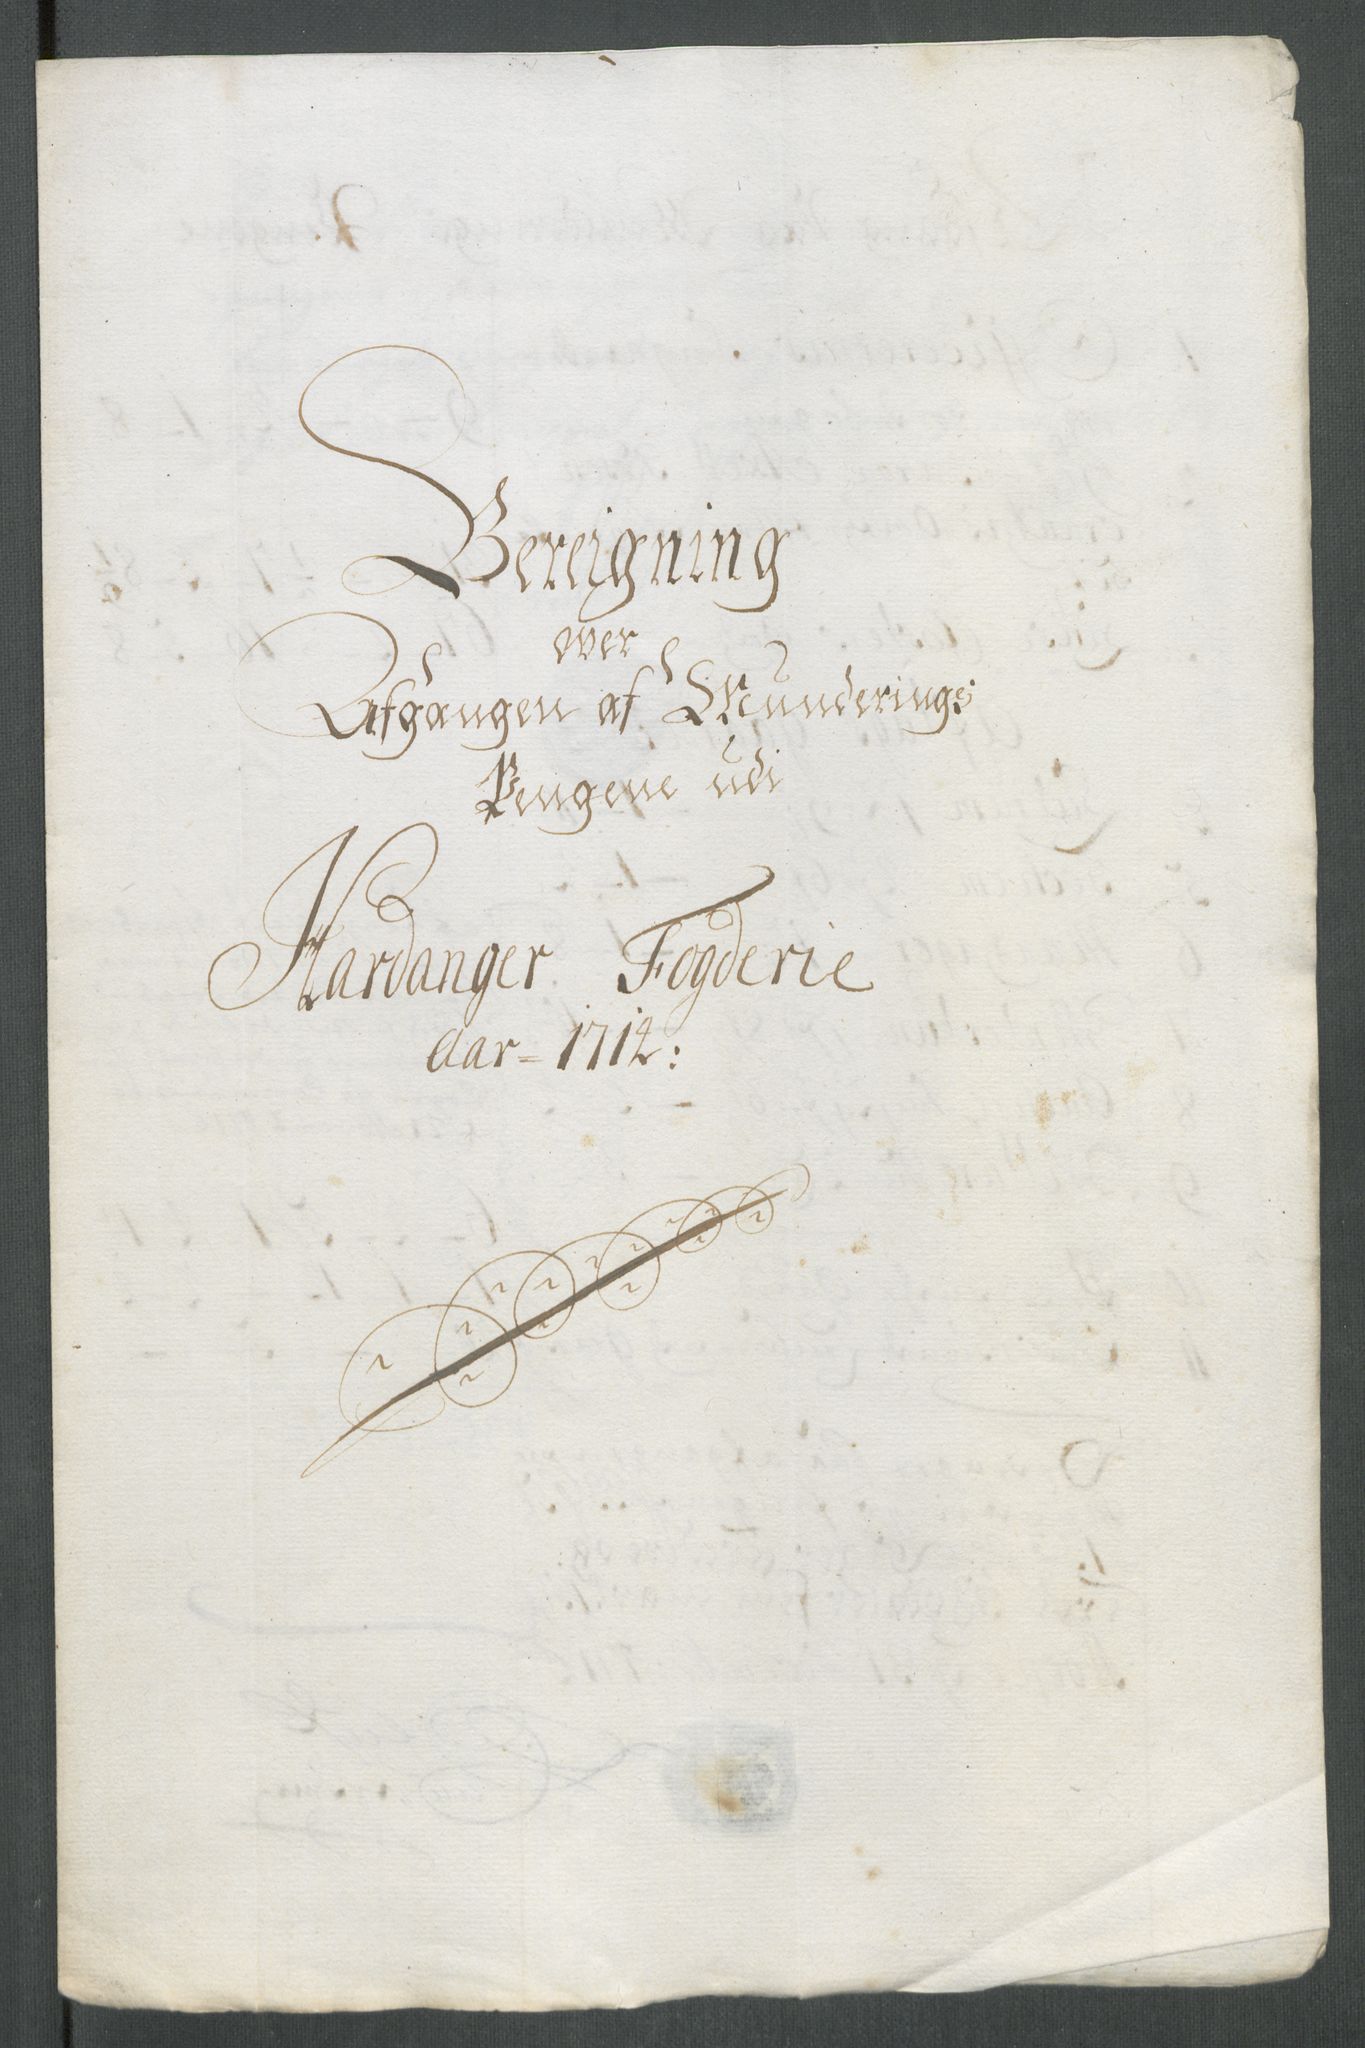 Bereigning
over
Afgangen af Munderings
Pengene udi
Hardanger Fogderie
Aar = 1714: